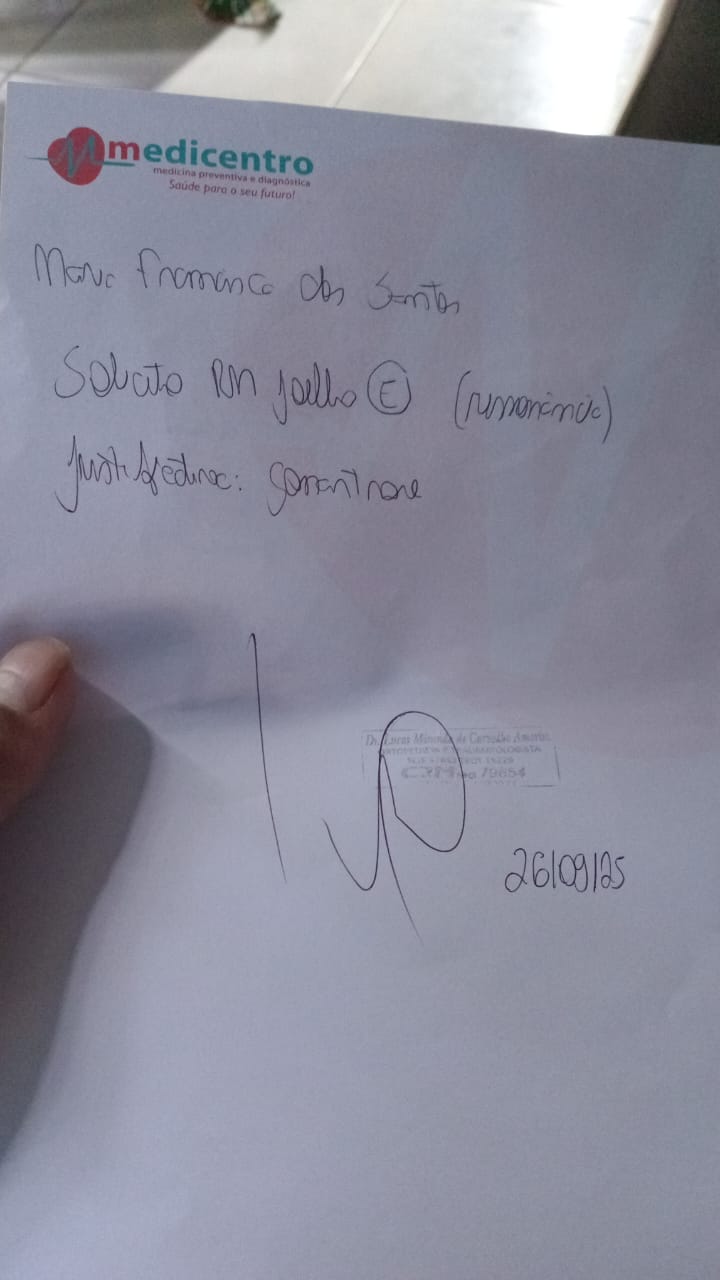 medicentro
medicina preventiva e diagnóstica
Saúde para o seu futuro!
Maria Francisca dos Santos
Solicito RM joelho (E) (ressonância)
Justificativa:
Dr. Lucas Miranda de Carvalho Amorim
ORTOPEDIA E TRAUMATOLOGISTA
CRM 79854
26/09/25